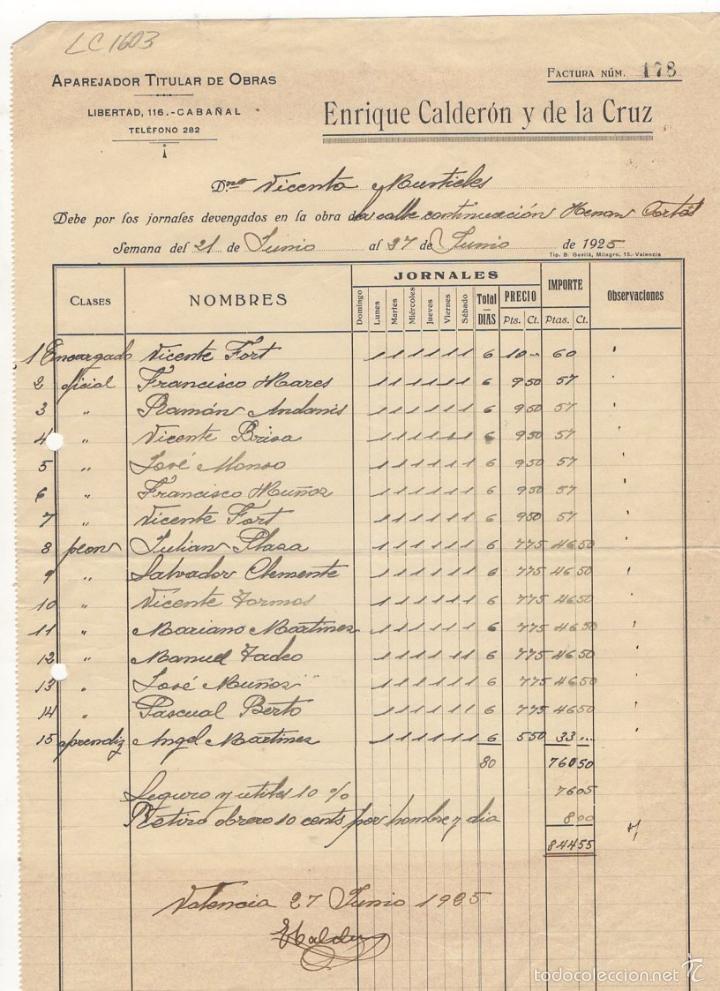 LC1603
APAREJADOR TITULAR DE OBRAS
LIBERTAD, 116.-CABAÑAL
TELÉFONO 282
FACTURA NÚM. 178
Enrique Calderón y de la Cruz
D.ña Vicenta
Debe por los jornales devengados en la obra de la calle continuación Hernan Cortés
Semana del 21 de Junio al 27 de Junio de 1925
Tip. B. Gavilá, Milagro, 15.-Valencia
CLASES NOMBRES JORNALES IMPORTE Observaciones
Domingo Lunes Martes Miércoles Jueves Viernes Sábado Total DIAS PRECIO
Pts. Ct. Ptas. Ct.
1 Encargado Vicente Fort 1 1 1 1 1 1 6 10 - 60 '
2 oficial Francisco Mares 1 1 1 1 1 1 6 9 50 57 '
3 " Ramón 1 1 1 1 1 1 6 9 50 57 '
4 " Vicente Brisa 1 1 1 1 1 1 6 9 50 57 '
5 " José Alonso 1 1 1 1 1 1 6 9 50 57 '
6 " Francisco Muñoz 1 1 1 1 1 1 6 9 50 57 '
7 " Vicente Fort 1 1 1 1 1 1 6 9 50 57 '
8 peon Julian Plasa 1 1 1 1 1 1 6 7 75 46 50 '
9 " Salvador Clemente 1 1 1 1 1 1 6 7 75 46 50 '
10 " Vicente Tormos 1 1 1 1 1 1 6 7 75 46 50 '
11 " Mariano Martinez 1 1 1 1 1 1 6 7 75 46 50 '
12 " Manuel Tadeo 1 1 1 1 1 1 6 7 75 46 50 '
13 " José Muñoz " 1 1 1 1 1 1 6 7 75 46 50 '
14 " Pascual Berto 1 1 1 1 1 1 6 7 75 46 50 '
15 aprendiz Angel Martinez 1 1 1 1 1 1 6 5 50 33 ... '
80 760 50
Seguro y utiles 10 % 76 05
Retiro obrero 10 cents por hombre y dia 8 00
844 55
Valencia 27 Junio 1925
ECalderon
todocoleccion.net